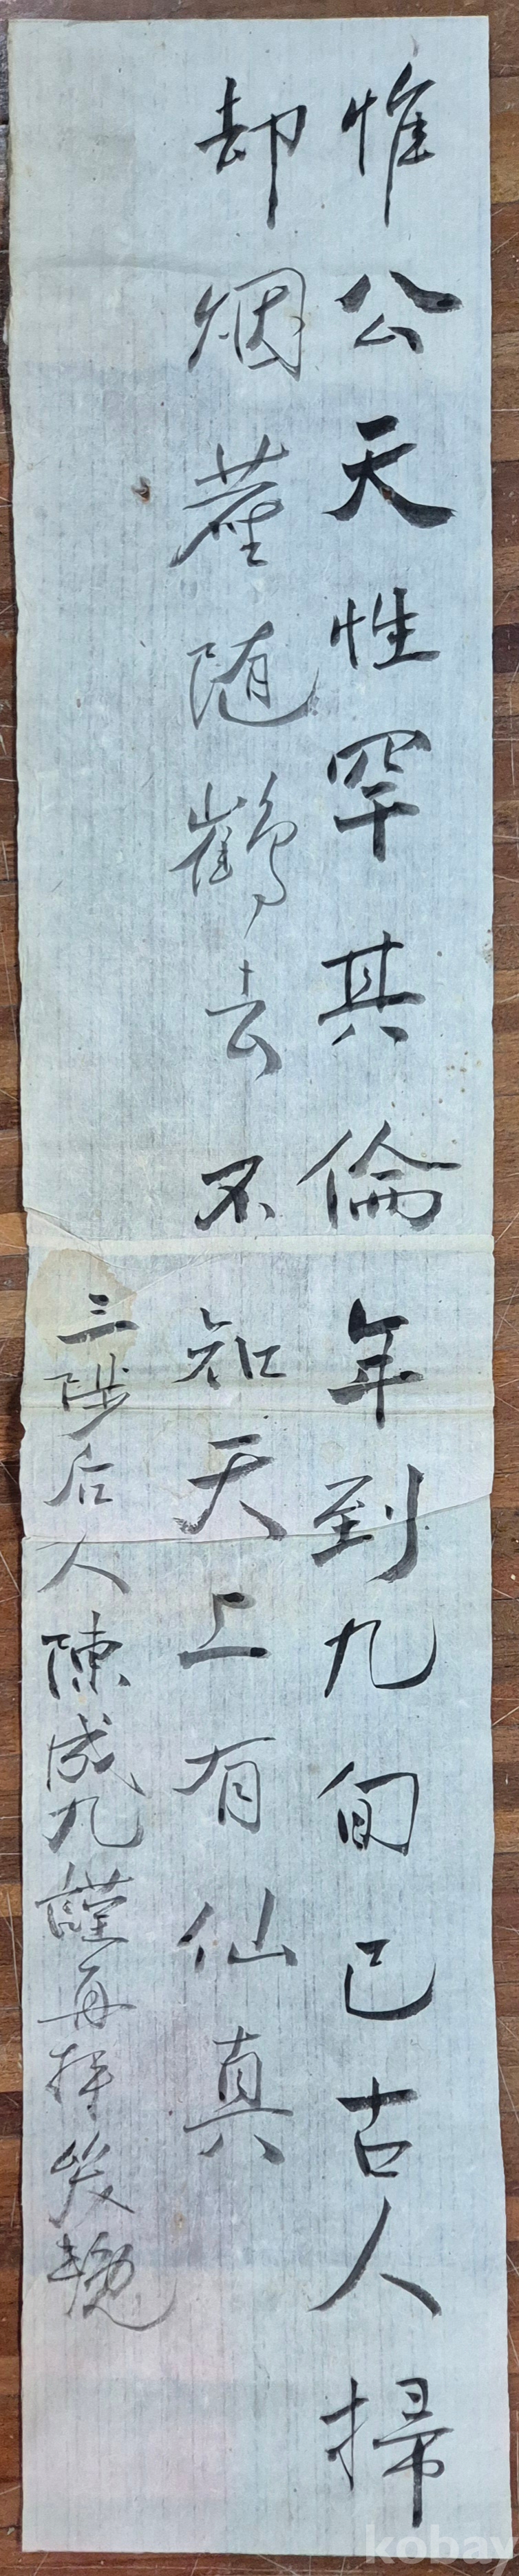 惟公天性罕其倫年到九旬已古人掃
却烟塵随鶴去不知天上有仙真
三陟后人陳成九謹再拜哭輓
kobay